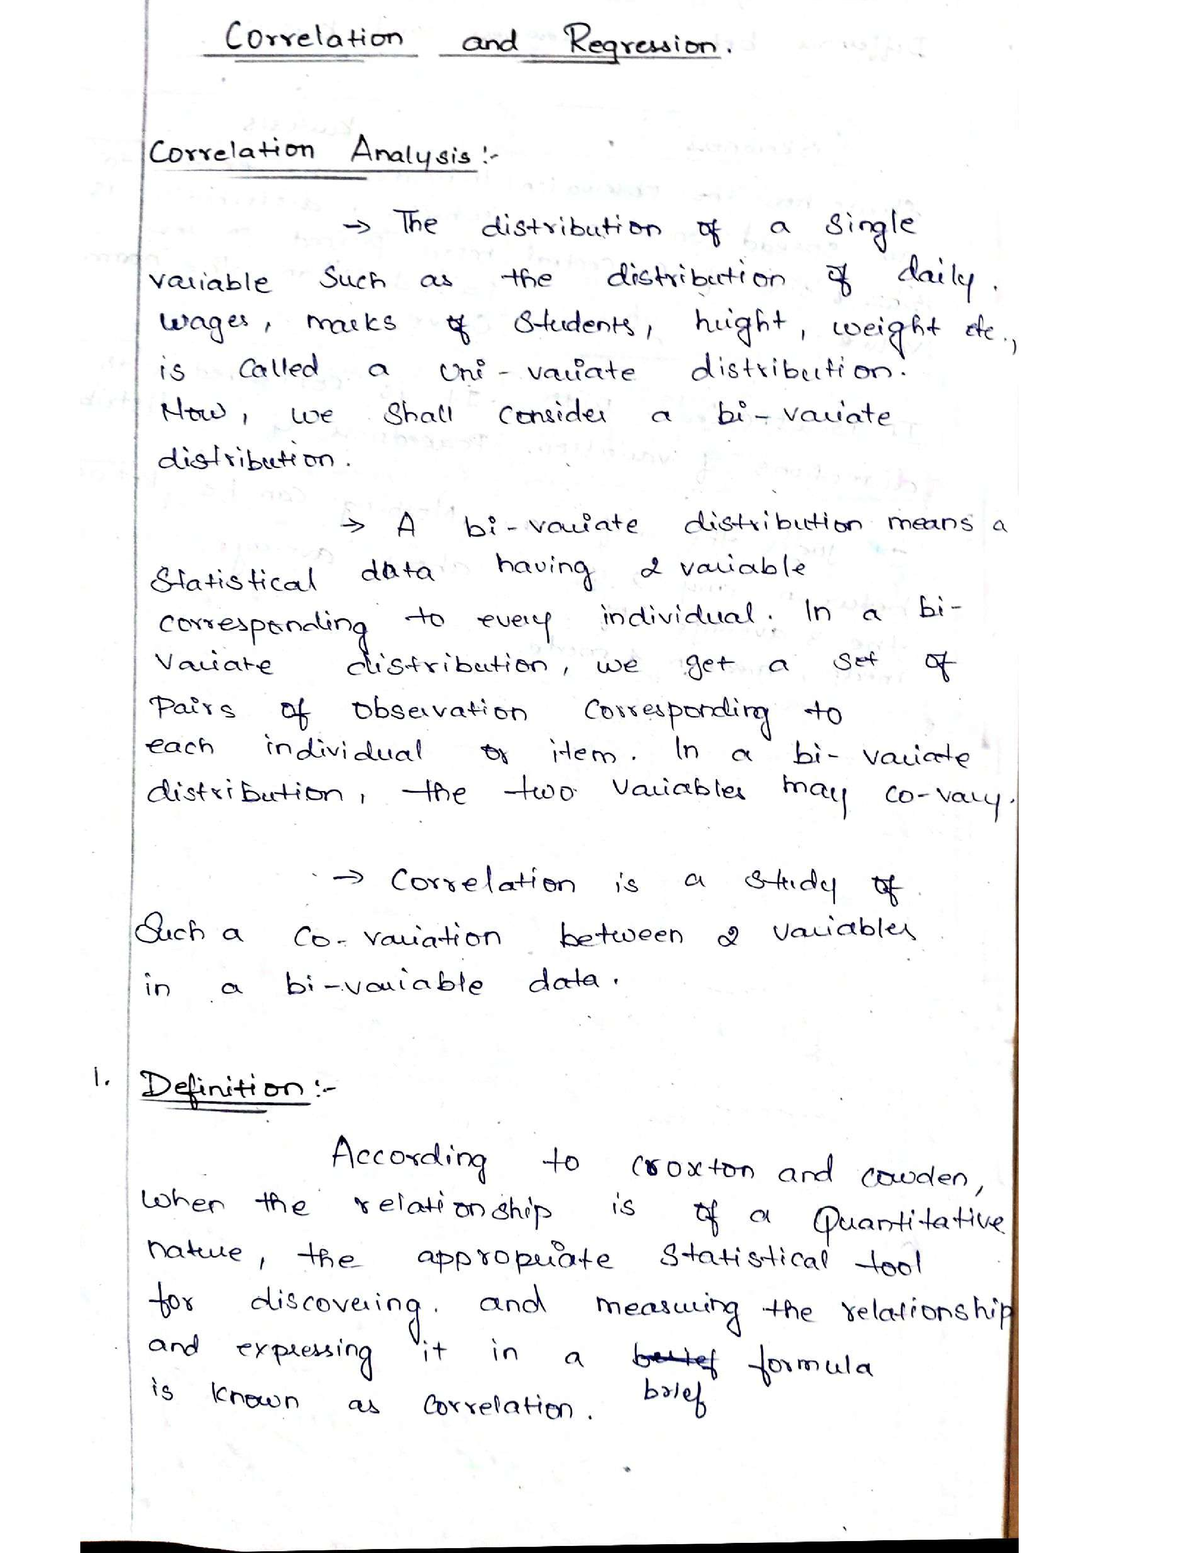 Correlation and Regression.
Correlation Analysis :-
→ The distribution of a single
variable Such as the distribution of daily.
wages, marks of Students, height, weight etc.,
is Called a Uni - variate distribution.
Now, we Shall Consider a bi - variate
distribution.
→ A bi - variate distribution means a
Statistical data having 2 variable
corresponding to every individual. In a bi-
Variate distribution, we get a Set of
Pairs of Observation Corresponding to
each individual or item. In a bi - variate
distribution, the two Variables may co-vary.
→ Correlation is a Study of
Such a Co- variation between 2 Variables
in a bi -variable data.
1. Definition :-
According to Croxton and cowden,
When the relationship is of a Quantitative
nature, the appropriate Statistical tool
for discovering. and measuring the relationship
and expressing it in a formula
brief
is Known as Correlation.